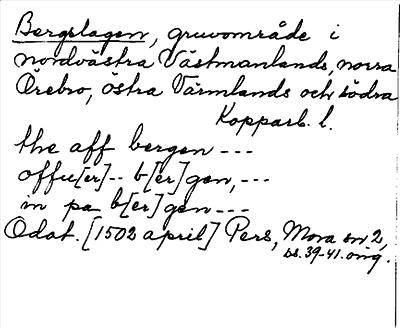 Bergslagen, gruvområde i
nordvästra Västmanlands, norra
Örebro, östra Värmlands och södra
Kopparb. l.
the aff bergen ---
offu[er]-- b[er]gen, ---
in pa b[er]gen ---
Odat. [1502 april] Pers, Mora sn 2,
bs. 39-41. orig.